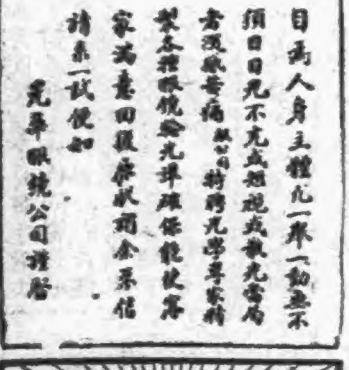 目為人身主體凡一舉一動無不
須目目光不充或短視或散光當局
者深感苦痛敝公司特聘光學專家精
製各種眼鏡驗光準確保能使客
家滿意回復原狀祠余不信
請來一試便知
光華眼鏡公司謹啓